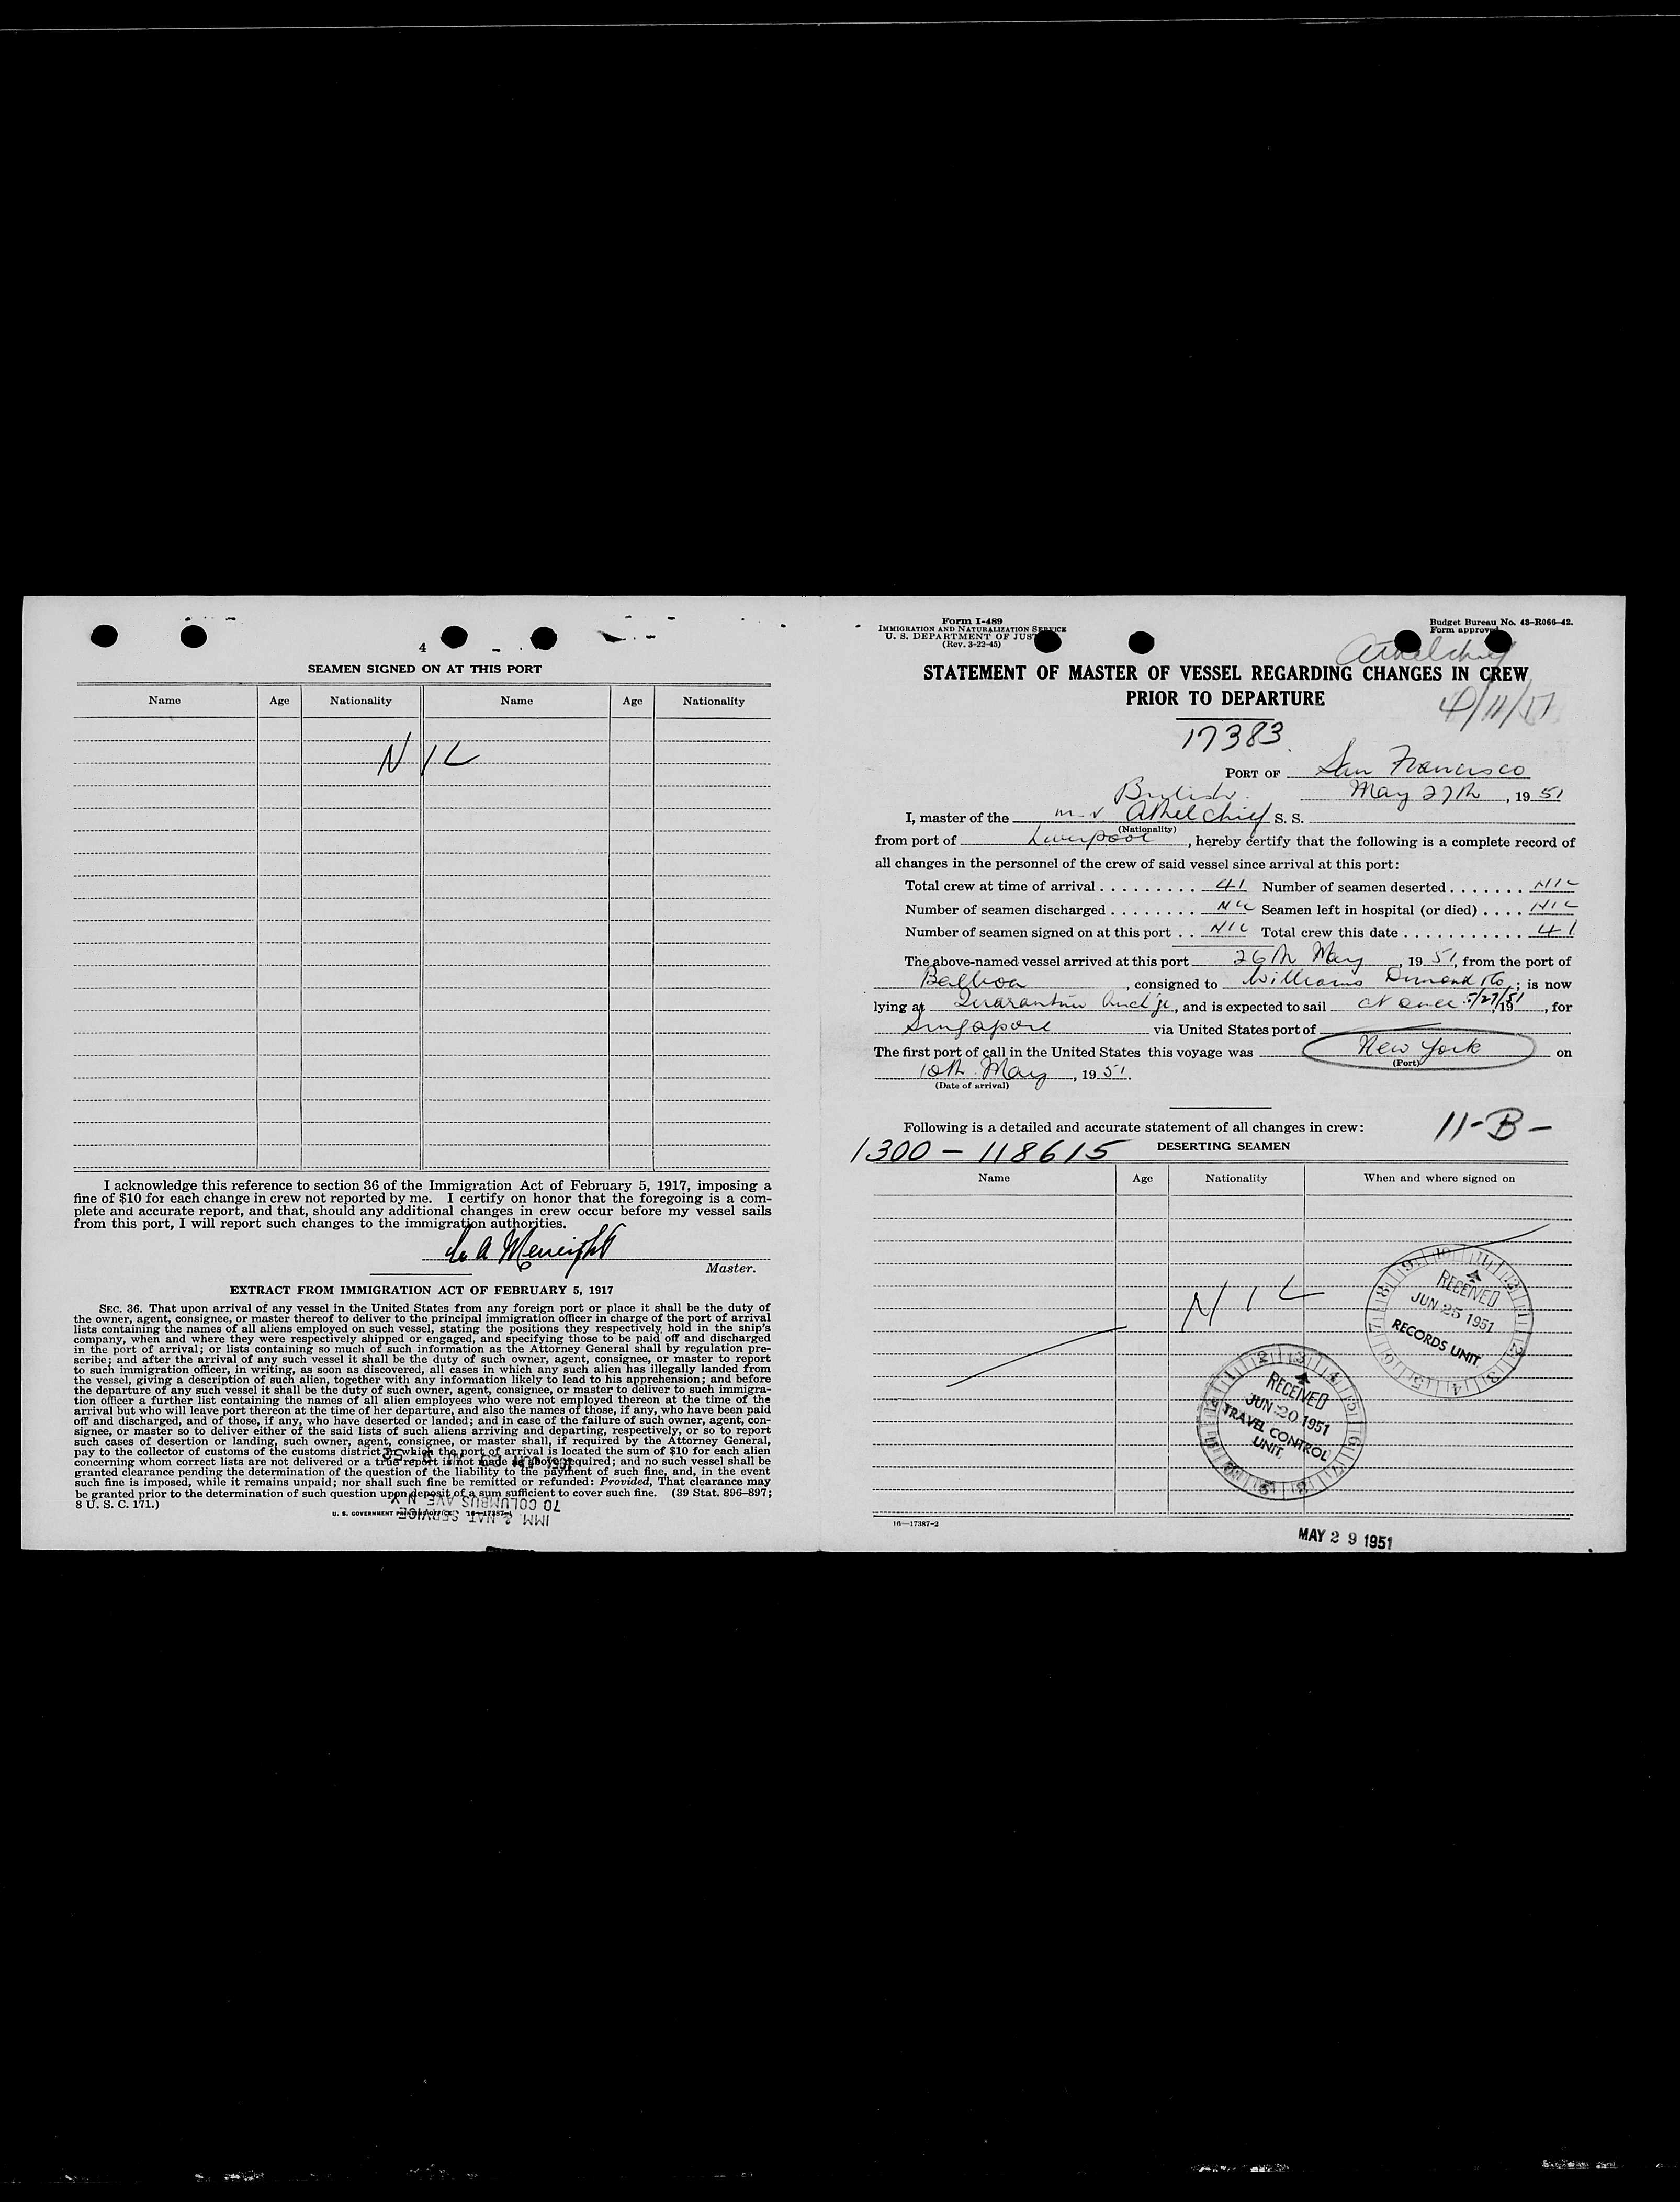 4
SEAMEN SIGNED ON AT THIS PORT
Name Age Nationality Name Age Nationality
NIL
I acknowledge this reference to section 36 of the Immigration Act of February 5, 1917, imposing a
fine of $10 for each change in crew not reported by me. I certify on honor that the foregoing is a com-
plete and accurate report, and that, should any additional changes in crew occur before my vessel sails
from this port, I will report such changes to the immigration authorities.
Master.
EXTRACT FROM IMMIGRATION ACT OF FEBRUARY 5, 1917
SEC. 36. That upon arrival of any vessel in the United States from any foreign port or place it shall be the duty of
the owner, agent, consignee, or master thereof to deliver to the principal immigration officer in charge of the port of arrival
lists containing the names of all aliens employed on such vessel, stating the positions they respectively hold in the ship's
company, when and where they were respectively shipped or engaged, and specifying those to be paid off and discharged
in the port of arrival; or lists containing so much of such information as the Attorney General shall by regulation pre-
scribe; and after the arrival of any such vessel it shall be the duty of such owner, agent, consignee, or master to report
to such immigration officer, in writing, as soon as discovered, all cases in which any such alien has illegally landed from
the vessel, giving a description of such alien, together with any information likely to lead to his apprehension; and before
the departure of any such vessel it shall be the duty of such owner, agent, consignee, or master to deliver to such immigra-
tion officer a further list containing the names of all alien employees who were not employed thereon at the time of the
arrival but who will leave port thereon at the time of her departure, and also the names of those, if any, who have been paid
off and discharged, and of those, if any, who have deserted or landed; and in case of the failure of such owner, agent, con-
signee, or master so to deliver either of the said lists of such aliens arriving and departing, respectively, or so to report
such cases of desertion or landing, such owner, agent, consignee, or master shall, if required by the Attorney General,
pay to the collector of customs of the customs district in which the port of arrival is located the sum of $10 for each alien
concerning whom correct lists are not delivered or a true report is not made as above required; and no such vessel shall be
granted clearance pending the determination of the question of the liability to the payment of such fine, and, in the event
such fine is imposed, while it remains unpaid; nor shall such fine be remitted or refunded: Provided, That clearance may
be granted prior to the determination of such question upon deposit of a sum sufficient to cover such fine. (39 Stat. 896-897;
8 U. S. C. 171.)
U. S. GOVERNMENT PRINTING OFFICE 16—17387-1
IMM. & NAT SERVICE
70 COLUMBUS AVE. N.Y.
Form I-489
IMMIGRATION AND NATURALIZATION SERVICE
U. S. DEPARTMENT OF JUST
(Rev. 3-22-45)
Budget Bureau No. 43-R066-42.
Form approved
Athelchief
STATEMENT OF MASTER OF VESSEL REGARDING CHANGES IN CREW
PRIOR TO DEPARTURE
17383
PORT OF San Francisco
May 27th, 19 51
British
I, master of the m.v Athelchief S. S.
(Nationality)
from port of Liverpool, hereby certify that the following is a complete record of
all changes in the personnel of the crew of said vessel since arrival at this port:
Total crew at time of arrival . . . . . . . . . 41 Number of seamen deserted . . . . . . . NIL
Number of seamen discharged . . . . . . . . NIL Seamen left in hospital (or died) . . . . NIL
Number of seamen signed on at this port . . NIL Total crew this date . . . . . . . . . . . 41
The above-named vessel arrived at this port 26th May, 19 51, from the port of
Balboa, consigned to Williams Dimond & Co; is now
lying at Quarantine Anch'ge, and is expected to sail at once 5/27/51, 19, for
Singapore via United States port of
The first port of call in the United States this voyage was New York on
(Port)
10th May, 19 51.
(Date of arrival)
Following is a detailed and accurate statement of all changes in crew:
11-B-
1300 - 118615
DESERTING SEAMEN
Name Age Nationality When and where signed on
NIL
RECEIVED
JUN 25 1951
RECORDS UNIT
RECEIVED
JUN 20 1951
TRAVEL CONTROL
UNIT
16—17387-2
MAY 29 1951